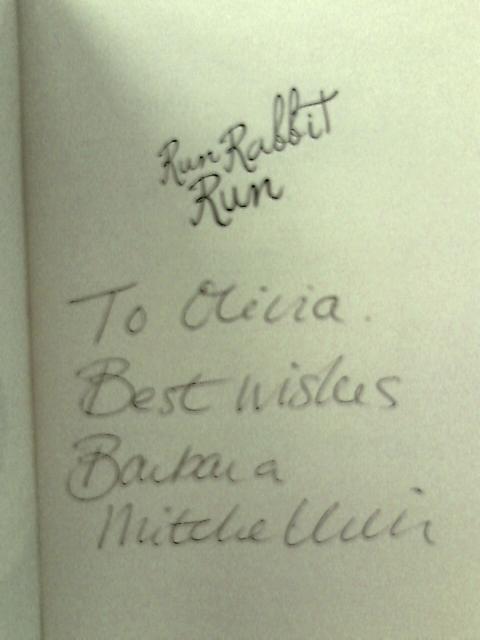 Run Rabbit
Run
To Olivia.
Best wishes
Barbara
Mitchelhill